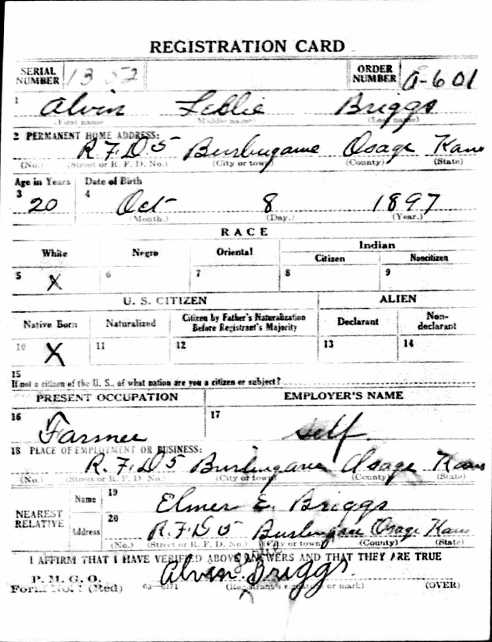 REGISTRATION CARD
SERIAL NUMBER 1352 ORDER NUMBER A-601
1 Alvin Leslie Briggs
(First name) (Middle name) (Last name)
2 PERMANENT HOME ADDRESS:
R.F.D 5 Burlingame Osage Kans
(No.) (Street or R. F. D. No.) (City or town) (County) (State)
Age in Years Date of Birth
3 20 4 Oct 8 1897
(Month.) (Day.) (Year.)
RACE
White Negro Oriental Indian
Citizen Noncitizen
5 X 6 7 8 9
U. S. CITIZEN ALIEN
Native Born Naturalized Citizen by Father's Naturalization Before Registrant's Majority Declarant Non-declarant
10 X 11 12 13 14
15
If not a citizen of the U. S., of what nation are you a citizen or subject?
PRESENT OCCUPATION EMPLOYER'S NAME
16 Farmer 17 self
18 PLACE OF EMPLOYMENT OR BUSINESS:
R.F.D 5 Burlingame Osage Kans
(No.) (Street or R. F. D. No.) (City or town) (County) (State)
NEAREST RELATIVE Name 19 Elmer E. Briggs
Address 20 R.F.D 5 Burlingame Osage Kans
(No.) (Street or R. F. D. No.) (City or town) (County) (State)
I AFFIRM THAT I HAVE VERIFIED ABOVE ANSWERS AND THAT THEY ARE TRUE
P. M. G. O.
Form No. 1 (Red) Alvin Briggs
(Registrant's signature or mark) (OVER)